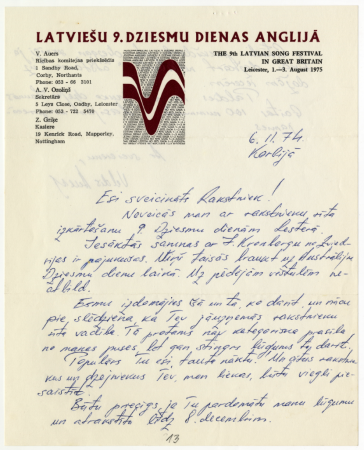 LATVIEŠU 9. DZIESMU DIENAS ANGLIJĀ
V. Auers
Rīcības komitejas priekšsēdis
1 Sandby Road,
Corby, Northants
Phone: 053 - 66 - 2101
A. V. Ozoliņš
Sekretārs
5 Leys Close, Oadby, Leicester
Phone: 053 - 722 - 3470
Z. Grīže
Kasiere
10 Kenrick Road, Mapperley,
Nottingham
THE 9th LATVIAN SONG FESTIVAL
IN GREAT BRITAIN
Leicester, 1.—3. August 1975
6. 11. 74
Korbijā
Esi sveicināts Rakstniek!
Neveicās man ar rakstnieku rīta
izkārtošanu 9 Dziesmu dienām Lesterā.
Iesāktās sarunas ar Kronbergu no Zvied
rijas ir pajukušas. Viņš taisās braukt uz Austrāliju
Dziesmu dienu laikā. Uz pēdējām vēstulēm ne-
atbild.
Esmu izdomājies šā un tā, ko darīt un nācu
pie slēdziena, ka Tev jāuzņemās rakstnieku
rīta vadība. Tā protams nav kategoriska prasība
no manas puses, bet gan stingrs lūgums to darīt.
Populārs Tu esi tautā
un dzejniekus Tev, man liekas, būtu viegli pie-
saistīt.
Būtu priecīgs, ja Tu pārdomātu manu lūgumu
un atrakstītu līdz 8. decembrim.
13